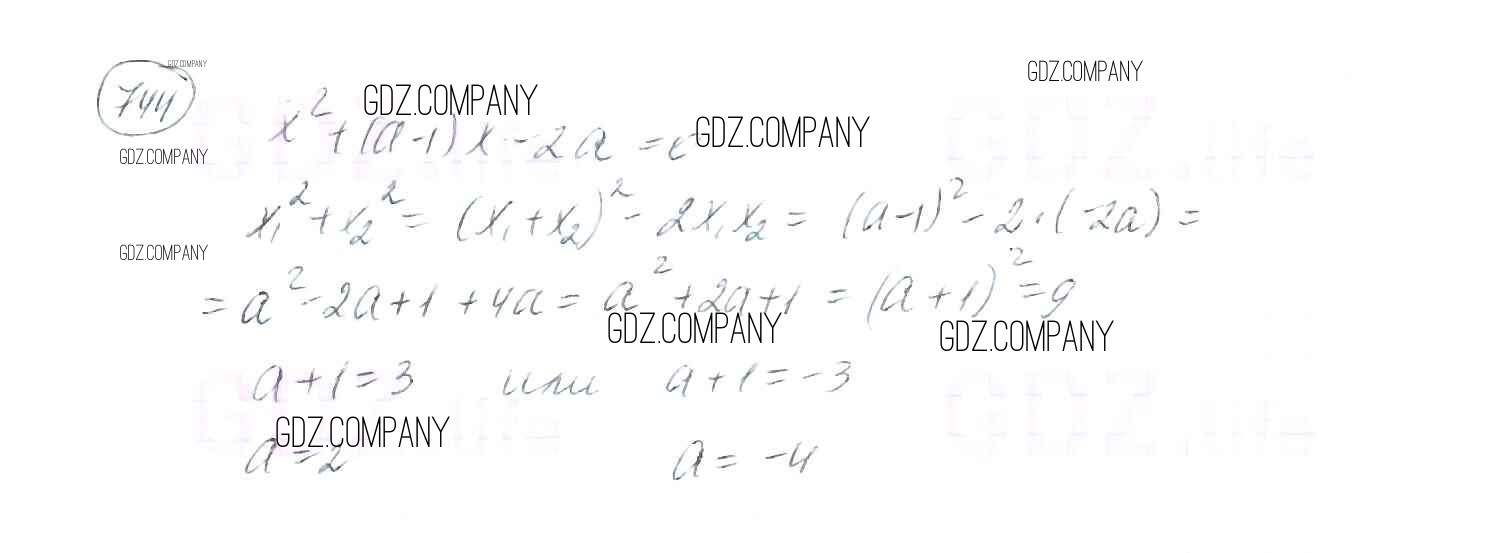 744 GDZ.COMPANY GDZ.COMPANY GDZ.COMPANY
x² + (a-1)x - 2a = GDZ.COMPANY
GDZ.COMPANY GDZ.life GDZ.life
x₁² + x₂² = (x₁ + x₂)² - 2x₁x₂ = (a-1)² - 2·(-2a) =
GDZ.COMPANY
= a² - 2a + 1 + 4a = a² + 2a + 1 = (a+1)² = 9
GDZ.COMPANY GDZ.COMPANY
a + 1 = 3 или a + 1 = -3
GDZ.COMPANY GDZ.life GDZ.life
a = 2 a = -4